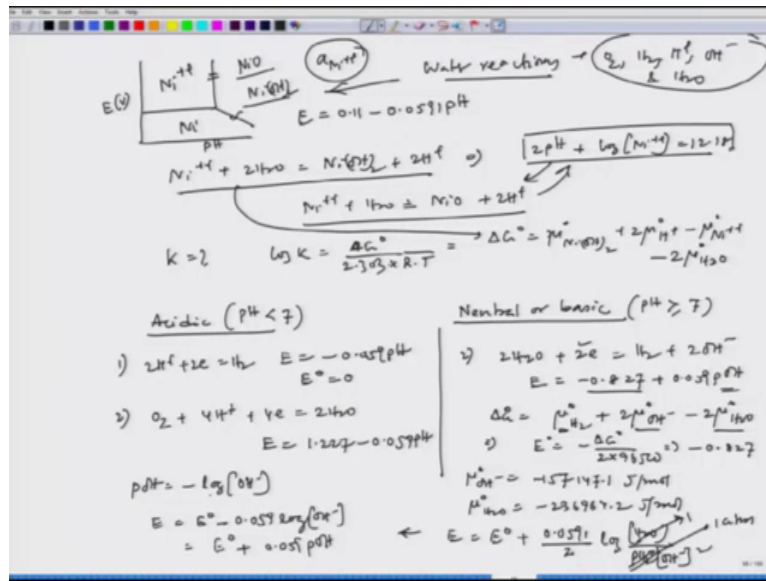 Ni⁺⁺ = NiO
Ni(OH)₂
a Ni⁺⁺
Water reactions → O₂, H₂, H⁺, OH⁻
& H₂O
E(V)
Ni
pH
E = 0.11 - 0.0591 pH
Ni⁺⁺ + 2H₂O = Ni(OH)₂ + 2H⁺ ⇒ 2pH + log[Ni⁺⁺] = 12.18
Ni⁺⁺ + H₂O = NiO + 2H⁺
K = ? log K = ΔG° / 2.303 × R.T = ΔG° = μ°Ni(OH)₂ + 2μ°H⁺ - μ°Ni⁺⁺
- 2μ°H₂O
Acidic (pH < 7)
1) 2H⁺ + 2e = H₂ E = -0.059 pH
E° = 0
2) O₂ + 4H⁺ + 4e = 2H₂O
E = 1.227 - 0.059 pH
pOH = - log[OH⁻]
E = E° - 0.059 log[OH⁻]
= E° + 0.059 pOH
Neutral or basic (pH ≥ 7)
2) 2H₂O + 2e = H₂ + 2OH⁻
E = -0.827 + 0.059 pOH
ΔG° = μ°H₂ + 2μ°OH⁻ - 2μ°H₂O
⇒ E° = - ΔG° / 2×96500 ⇒ -0.827
μ°OH⁻ = -157147.1 J/mol
μ°H₂O = -236964.2 J/mol
← E = E° + 0.0591 / 2 log [H₂O] / pH₂ [OH⁻]² 1 1 atm